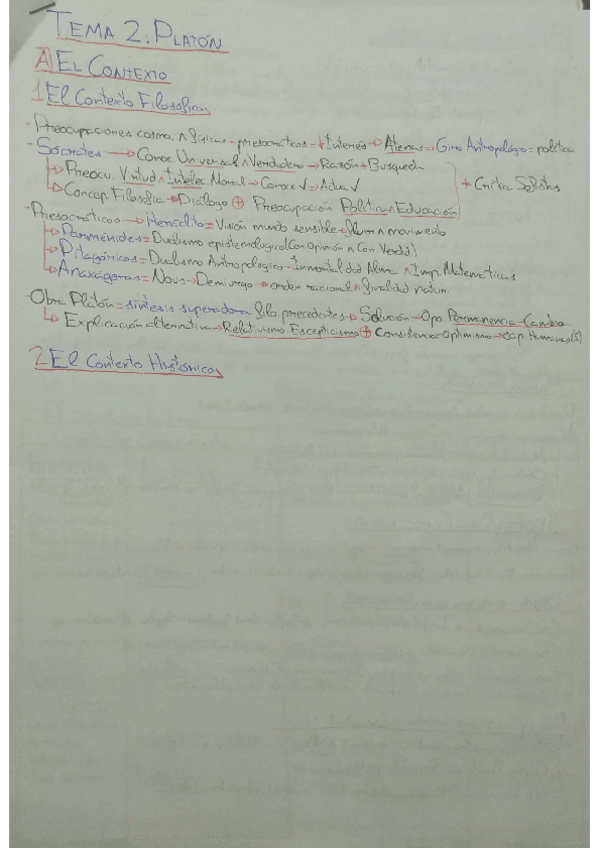 TEMA 2: PLATÓN
A) EL CONTEXTO
1 El Contexto Filosófico
- Preocupaciones cosmo. ∧ físicas - presocráticos → ↓ Interés → Atenas → Giro Antropológico = política
- Sócrates → Conoc. Universal ∧ Verdadero → Razón + Búsqueda
↳ Preocu. Virtud ∧ Intelec. Moral → Conoce ✓ → Adua ✓
↳ Concep. Filosofía → Diálogo ⊕ Preocupación Política ∧ Educación
+ Crítica Sofistas
- Presocráticos → Heráclito = Visión mundo sensible movimiento
↳ Parménides = Dualismo epistemológico (Con. Opinión ∧ Con. Verdad)
↳ Pitagóricos = Dualismo Antropológico - Inmortalidad Alma ∧ Imp. Matemáticas
↳ Anaxágoras = Nous → Demiurgo → orden racional ∧ finalidad natur.
- Obra Platón = síntesis superadora filo. precedentes → Solución → Opo Permanencia - Cambio
↳ Explicación alternativa → Relativismo. Escepticismo ⊕ Consistencia - Optimismo → Cap. Humano(s)
2 El Contexto Histórico